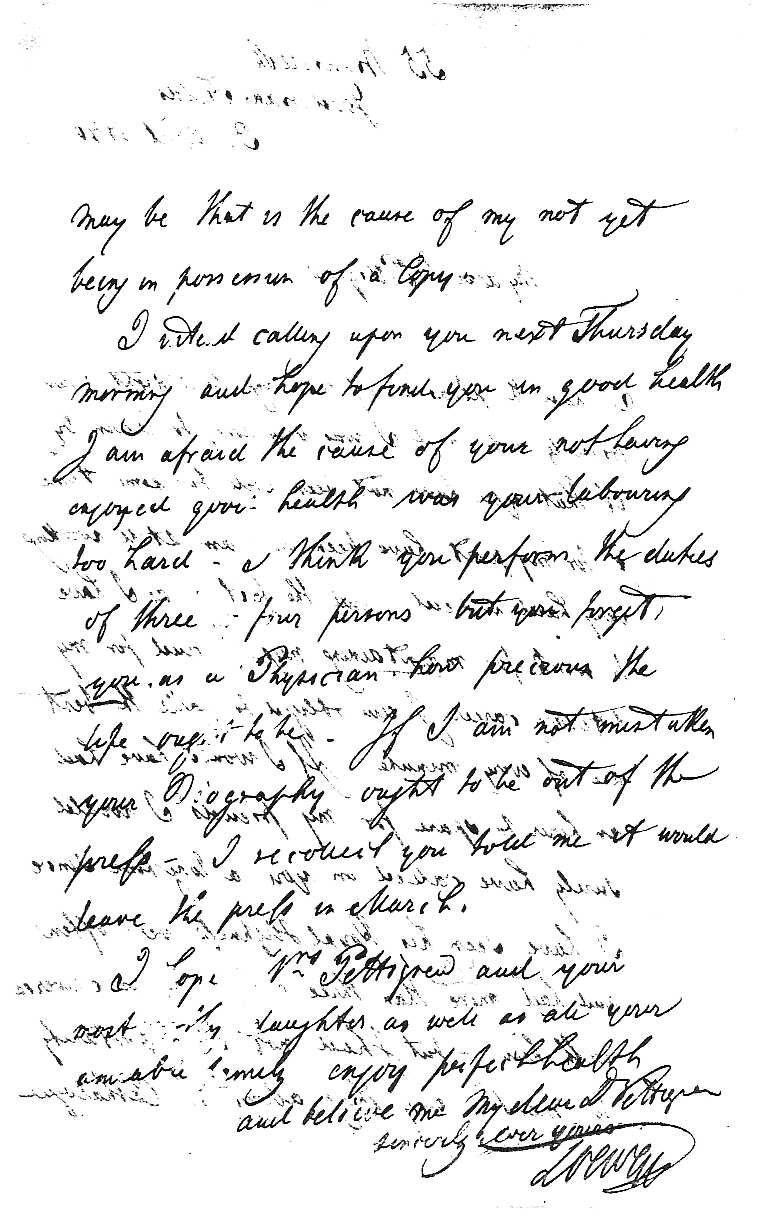 may be that is the cause of my not yet
being in possession of a Copy
I calling upon you next Thursday
morning and hope to find you in good health
I am afraid the cause of your not having
enjoyed good health was your labouring
too hard - I think you perform the duties
of three - four persons but you forget,
you as a Physician how precious the
life ought to be - If I am not mistaken
your Biography ought to be out of the
press - I recollect you told me it would
leave the press in March.
I hope Mrs Pettigrew and your
most daughter as well as all your
amiable family enjoy perfect health
and believe me My dear Dr Pettigrew
sincerely ever yours